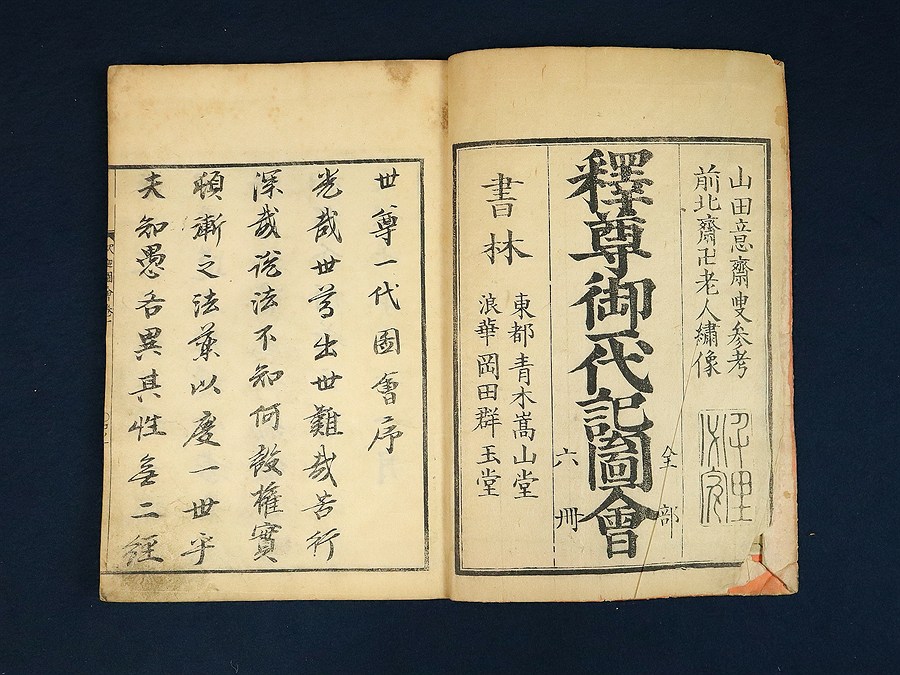 山田意齋叟参考
前北齋卍老人繡像
全部
釋尊御一代記圖會
六冊
書林
東都青木嵩山堂
浪華岡田群玉堂
世尊一代圖會序
世尊出世難哉苦行
深哉說法不知何設權實
頓漸之法藥以度一世乎
夫知愚各異其性無二經